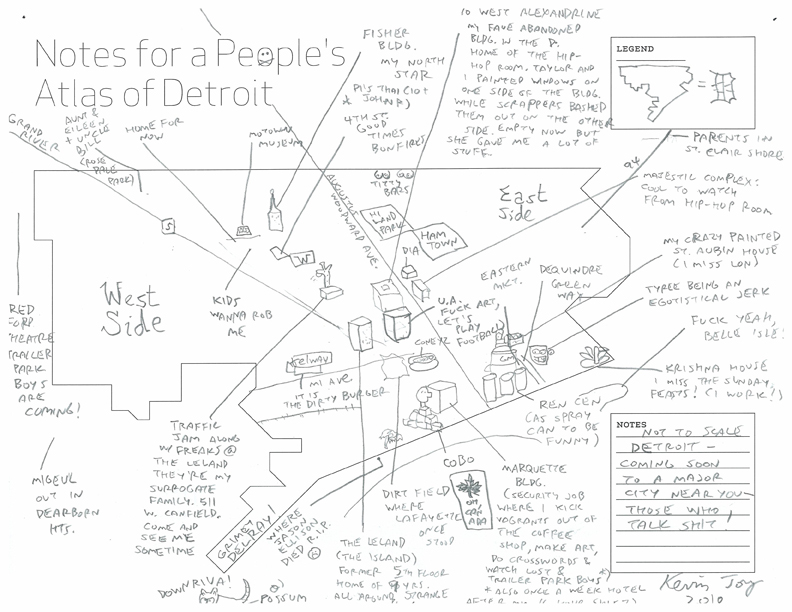 Notes for a People's
Atlas of Detroit
FISHER
BLDG.
MY NORTH
STAR
10 WEST ALEXANDRINE
MY FAVE ABANDONED
BLDG. IN THE D.
HOME OF THE HIP-
HOP ROOM. TAYLOR AND
I PAINTED WINDOWS ON
ONE SIDE OF THE BLDG.
WHILE SCRAPPERS BASHED
THEM OUT ON THE OTHER
SIDE. EMPTY NOW BUT
SHE GAVE ME A LOT OF
STUFF.
LEGEND
=
GRAND
RIVER
AUNT &
EILEEN
+ UNCLE
BILL
(ROSE
DALE
PARK)
HOME FOR
NOW
MOTOWN
MUSEUM
4TH ST.
GOOD
TIMES
BONFIRES
PARENTS IN
ST. CLAIR SHORE
94
MAJESTIC COMPLEX:
COOL TO WATCH
FROM HIP-HOP ROOM
TITTY
BARS
WOODWARD AVE.
HI
LAND
PARK
HAM
TOWN
East
Side
DIA
S
W
West
Side
KIDS
WANNA ROB
ME
EASTERN
MKT.
DEQUINDRE
GREEN
WAY
MY CRAZY PAINTED
ST. AUBIN HOUSE
(I MISS LON)
TYREE BEING AN
EGOTISTICAL JERK
U.A.
FUCK ART,
LET'S
PLAY
FOOTBALL
FUCK YEAH,
BELLE ISLE!
GM
KRISHNA HOUSE
I MISS THE SUNDAY
FEASTS! (I WORK!)
RED
THEATRE
TRAILER
PARK
BOYS
ARE
COMING!
TELWAY
MI AVE
IT IS
THE DIRTY BURGER
CONEYZ
REN CEN
(AS SPRAY
CAN TO BE
FUNNY)
TRAFFIC
JAM ALONG
W/ FREAKS @
THE LELAND
THEY'RE MY
SURROGATE
FAMILY. 511
W. CANFIELD.
COME AND
SEE ME
SOMETIME
MIGEUL
OUT IN
DEARBORN
HTS.
NOTES
NOT TO SCALE
DETROIT -
COMING SOON
TO A MAJOR
CITY NEAR YOU
THOSE WHO,
TALK SHIT!
COBO
OH
CAN
ADA
MARQUETTE
BLDG.
(SECURITY JOB
WHERE I KICK
VAGRANTS OUT OF
THE COFFEE
SHOP, MAKE ART,
DO CROSSWORDS &
WATCH LOST &
TRAILER PARK BOYS
* ALSO ONCE A WEEK HOTEL
DIRT FIELD
WHERE
LAFAYETTE
ONCE
STOOD
GRIMEY
DELRAY!
WHERE
JASON
ELLISON
DIED R.I.P.
THE LELAND
(THE ISLAND)
FORMER 5TH FLOOR
HOME OF 9 YRS.
ALL AROUND STRANGE
DOWNRIVA!
POSSUM
Kevin Joy